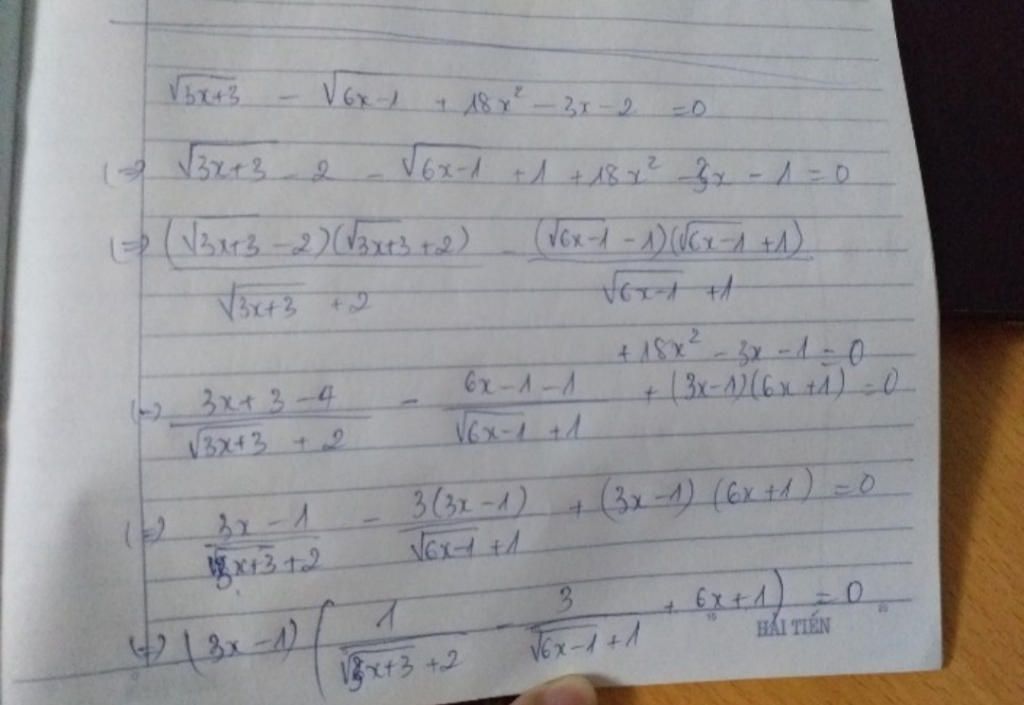 √3x+3 - √6x-1 + 18x² - 3x - 2 = 0
(=) √3x+3 - 2 - √6x-1 + 1 + 18x² - 3x - 1 = 0
(=) (√3x+3 - 2)(√3x+3 + 2) / √3x+3 + 2 - (√6x-1 - 1)(√6x-1 + 1) / √6x-1 + 1
+ 18x² - 3x - 1 = 0
(=) 3x + 3 - 4 / √3x+3 + 2 - 6x - 1 - 1 / √6x-1 + 1 + (3x-1)(6x+1) = 0
(=) 3x - 1 / √3x+3 + 2 - 3(3x-1) / √6x-1 + 1 + (3x-1)(6x+1) = 0
(=) (3x-1)(1 / √3x+3 + 2 - 3 / √6x-1 + 1 + 6x+1) = 0
HẢI TIẾN